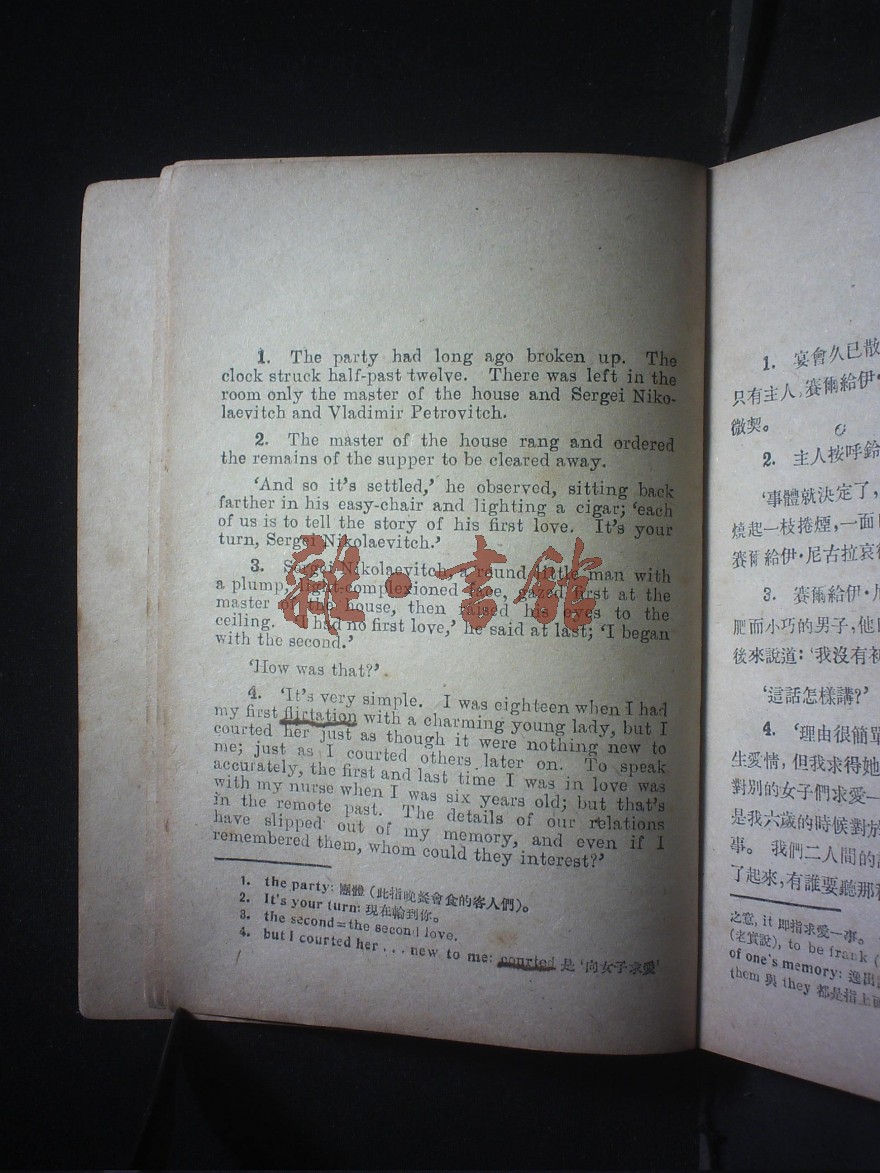 1. The party had long ago broken up. The
clock struck half-past twelve. There was left in the
room only the master of the house and Sergei Niko-
laevitch and Vladimir Petrovitch.
2. The master of the house rang and ordered
the remains of the supper to be cleared away.
'And so it's settled,' he observed, sitting back
farther in his easy-chair and lighting a cigar; 'each
of us is to tell the story of his first love. It's your
turn, Sergei Nikolaevitch.'
3. Sergei Nikolaevitch, a round little man with
a plump, light-complexioned face, gazed first at the
master of the house, then raised his eyes to the
ceiling. 'I had no first love,' he said at last; 'I began
with the second.'
'How was that?'
4. 'It's very simple. I was eighteen when I had
my first flirtation with a charming young lady, but I
courted her just as though it were nothing new to
me; just as I courted others later on. To speak
accurately, the first and last time I was in love was
with my nurse when I was six years old; but that's
in the remote past. The details of our relations
have slipped out of my memory, and even if I
remembered them, whom could they interest?'
1. the party: 團體(此指晚餐會食的客人們)。
2. It's your turn: 現在輪到你。
3. the second = the second love.
4. but I courted her . . . new to me: courted 是 '向女子求愛'
雜·書館
1. 宴會久已散
只有主人,賽爾給伊·
微契。
2. 主人按呼鈴
'事體就決定了,
燒起一枝捲煙,一面
賽爾給伊·尼古拉哀
3. 賽爾給伊·
肥而小巧的男子,他
後來說道:'我沒有初
'這話怎樣講?'
4. '理由很簡單
生愛情,但我求得她
對別的女子們求愛一
是我六歲的時候對於
事。我們二人間的
了起來,有誰要聽那
之意, it 即指求愛一事。
(老實說), to be frank (
of one's memory: 逸出
them 與 they 都是指上